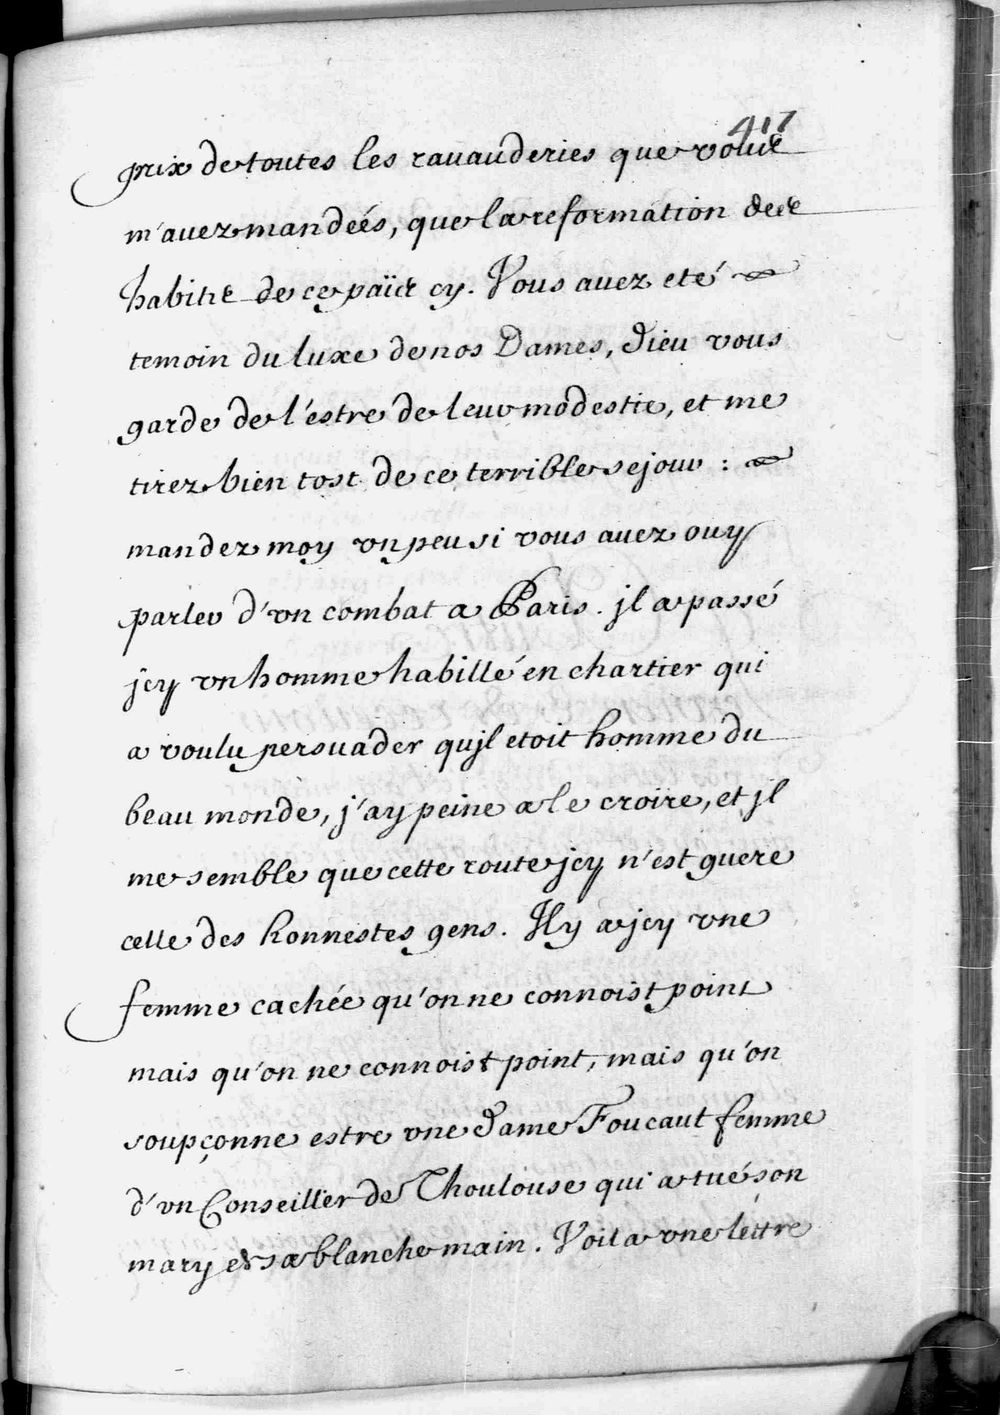 417
prix de toutes les ravauderies que vous
m'avez mandeés, que la reformation des
habits de ce païs cy. Vous avez eté
temoin du luxe de nos Dames, dieu vous
garde de l'éstre de leur modestie, et me
tirez bien tost de ce terrible sejour :
mandez moy vn peu si vous avez ouy
parler d'vn combat a Paris. jl a passé
jcy vn homme habillé en chartier qui
a voulu persuader qujl etoit homme du
beau monde, j'ay peine a le croire, et jl
me semble que cette route jcy n'est guere
celle des honnestes gens. Jl y a jcy vne
femme cachée qu'on ne connoist point
mais qu'on ne connoist point, mais qu'on
soupçonne estre vne dame Foucaut femme
d'vn Conseiller de Thoulouse qui a tué son
mary de sa blanche main. Voila vne lettre